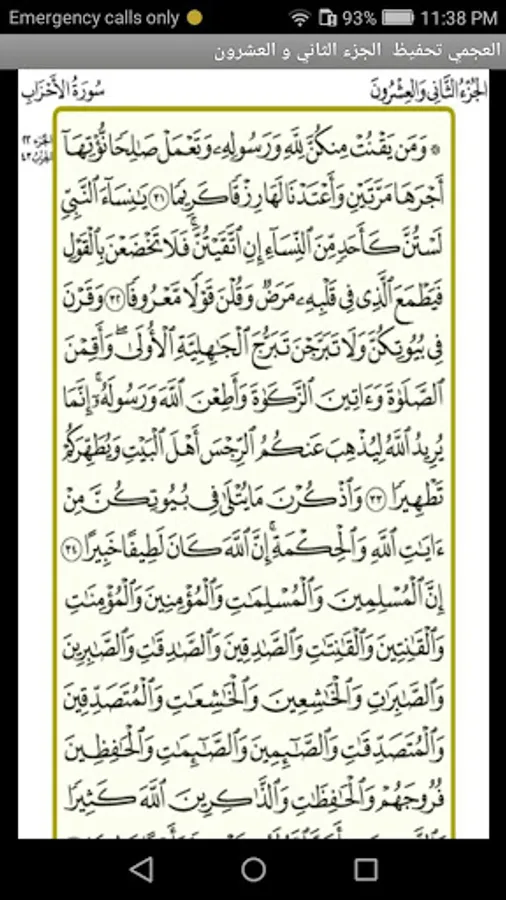 Emergency calls only 93% 11:38 PM
العجمي تحفيظ الجزء الثاني و العشرون
الجُزْءُ الثَّانِي وَالعِشْرُونَ سُورَةُ الأَحْزَابِ
الجزء ٢٢
الحزب ٤٣
۞ وَمَن يَقْنُتْ مِنكُنَّ لِلَّهِ وَرَسُولِهِۦ وَتَعْمَلْ صَٰلِحًا نُّؤْتِهَآ
أَجْرَهَا مَرَّتَيْنِ وَأَعْتَدْنَا لَهَا رِزْقًا كَرِيمًا ٣١ يَٰنِسَآءَ ٱلنَّبِيِّ
لَسْتُنَّ كَأَحَدٍ مِّنَ ٱلنِّسَآءِ إِنِ ٱتَّقَيْتُنَّۚ فَلَا تَخْضَعْنَ بِٱلْقَوْلِ
فَيَطْمَعَ ٱلَّذِى فِى قَلْبِهِۦ مَرَضٌ وَقُلْنَ قَوْلًا مَّعْرُوفًا ٣٢ وَقَرْنَ
فِى بُيُوتِكُنَّ وَلَا تَبَرَّجْنَ تَبَرُّجَ ٱلْجَٰهِلِيَّةِ ٱلْأُولَىٰۖ وَأَقِمْنَ
ٱلصَّلَوٰةَ وَءَاتِينَ ٱلزَّكَوٰةَ وَأَطِعْنَ ٱللَّهَ وَرَسُولَهُۥٓۚ إِنَّمَا
يُرِيدُ ٱللَّهُ لِيُذْهِبَ عَنكُمُ ٱلرِّجْسَ أَهْلَ ٱلْبَيْتِ وَيُطَهِّرَكُمْ
تَطْهِيرًا ٣٣ وَٱذْكُرْنَ مَا يُتْلَىٰ فِى بُيُوتِكُنَّ مِنْ
ءَايَٰتِ ٱللَّهِ وَٱلْحِكْمَةِۚ إِنَّ ٱللَّهَ كَانَ لَطِيفًا خَبِيرًا ٣٤
إِنَّ ٱلْمُسْلِمِينَ وَٱلْمُسْلِمَٰتِ وَٱلْمُؤْمِنِينَ وَٱلْمُؤْمِنَٰتِ
وَٱلْقَٰنِتِينَ وَٱلْقَٰنِتَٰتِ وَٱلصَّٰدِقِينَ وَٱلصَّٰدِقَٰتِ وَٱلصَّٰبِرِينَ
وَٱلصَّٰبِرَٰتِ وَٱلْخَٰشِعِينَ وَٱلْخَٰشِعَٰتِ وَٱلْمُتَصَدِّقِينَ
وَٱلْمُتَصَدِّقَٰتِ وَٱلصَّٰٓئِمِينَ وَٱلصَّٰٓئِمَٰتِ وَٱلْحَٰفِظِينَ
فُرُوجَهُمْ وَٱلْحَٰفِظَٰتِ وَٱلذَّٰكِرِينَ ٱللَّهَ كَثِيرًا